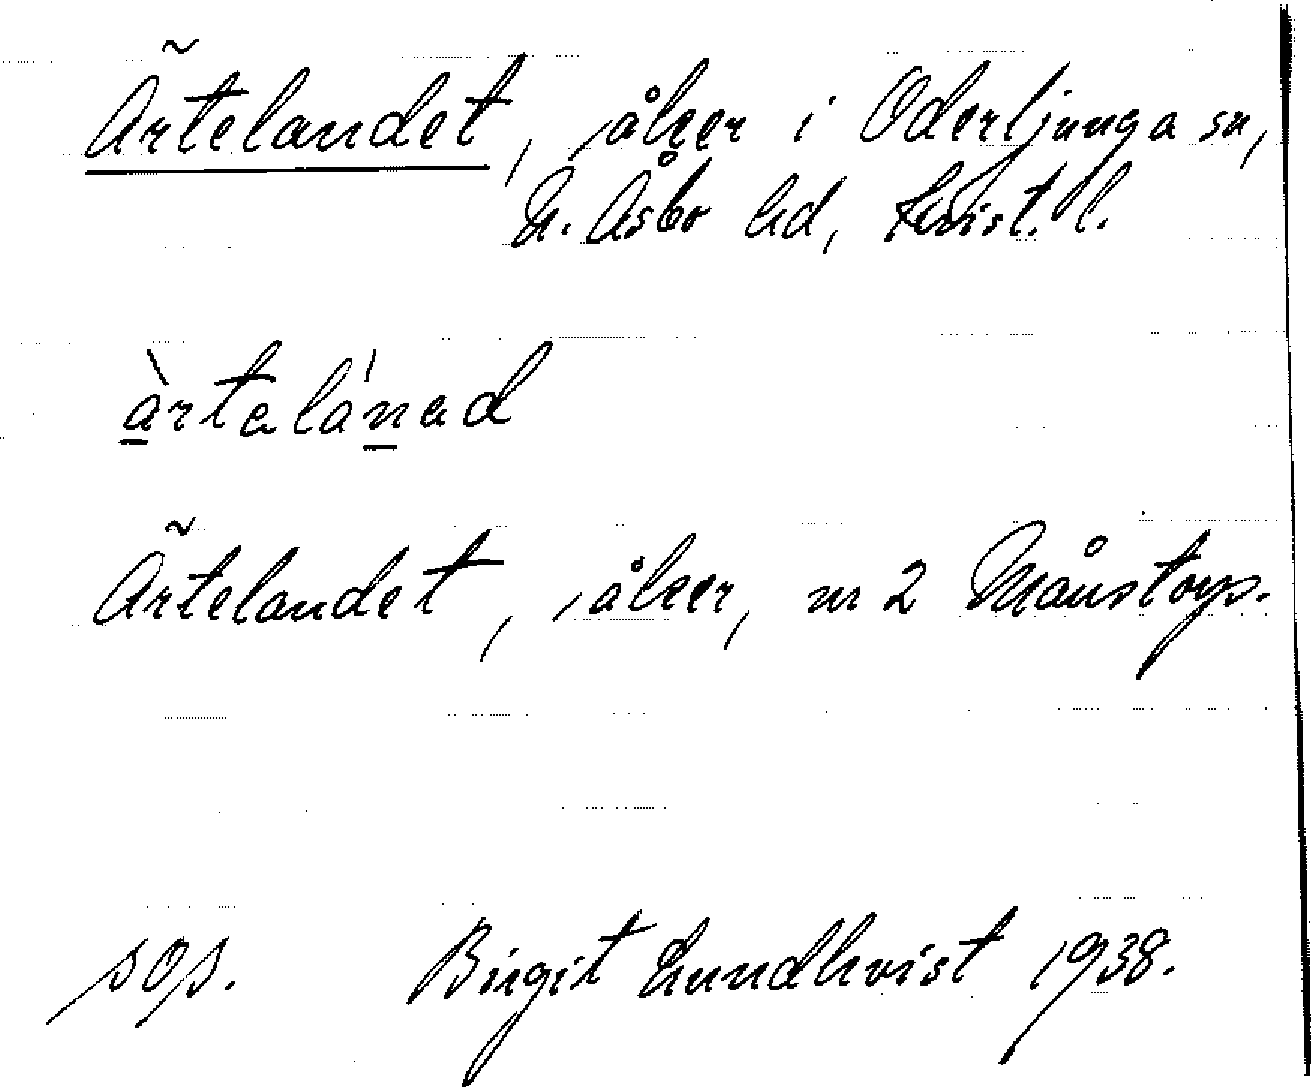 Ärtelandet, åker i Oderljunga sn,
N. Åsbo hd, Krist. l.
àrtalánad
Ärtelandet, åker, nr 2 Månstorp.
sop. Birgit Lundkvist 1938.